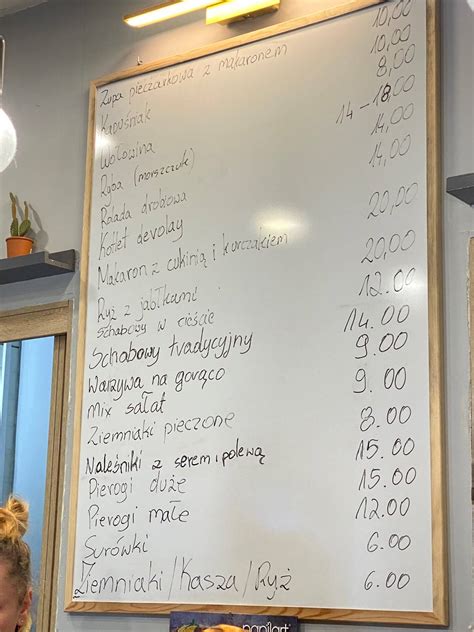 Zupa pieczarkowa z makaronem 10,00
Kapuśniak 10,00
Wołowina 8,00
Ryba (morszczuk) 14-18,00
Rolada drobiowa 14,00
Kotlet devolay 14,00
Makaron z cukinią i kurczakiem 20,00
Ryż z jabłkami 20,00
Schabowy w cieście 12.00
Schabowy tradycyjny 14.00
Warzywa na gorąco 9.00
Mix sałat 9.00
Ziemniaki pieczone 8.00
Naleśniki z serem i polewą 15.00
Pierogi duże 15.00
Pierogi małe 12.00
Surówki 6.00
Ziemniaki/Kasza/Ryż 6.00